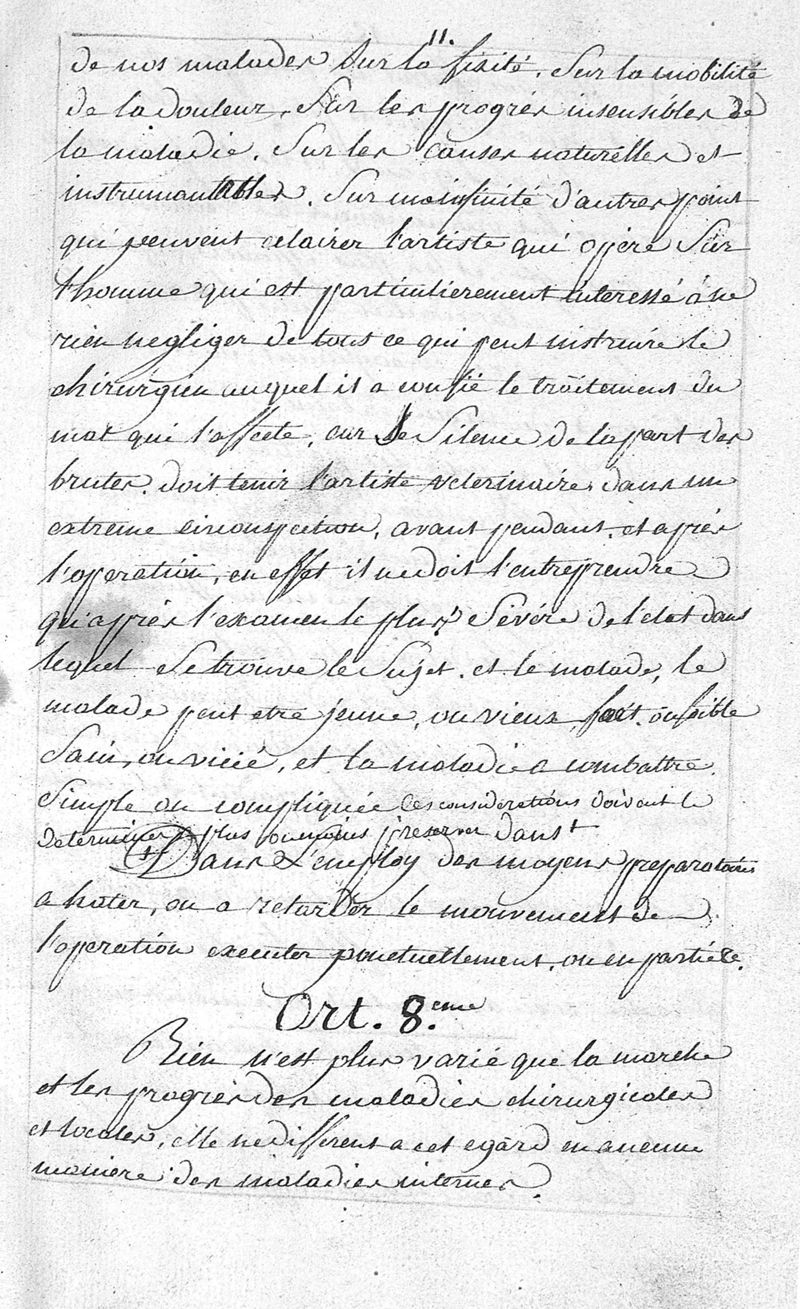 11.
de nos malades sur la fixité. Sur la mobilité
de la douleur. Sur les progrés insensibles de
la maladie. Sur les causes naturelles et
Sur une infinité d'autres point
qui peuvent eclairer l'artiste qui opére Sur
l'homme qui est particulierement interessé à ne
rien negliger de tous ce qui peut instruire le
chirurgien auquel il a confié le traitement du
mal qui l'affecte, car le Silence de la part des
brutes. doit tenir l'artiste veterinaire dans un
extreme circonspection, avant pendant. et après
l'operation, en effet il ne doit l'entreprendre
qu'après l'examen le plus Sévére de l'etat dans
lequel Se trouve le Sujet. et le malade, le
malade peut etre jeune, ou vieux, fort. ou foible
Sain, ou vicié, et la maladie a combattre.
Simple ou compliquée Ces considerations doivent le
determiner plus ou moins dans
Dans L'employ des moyens preparatoires
a hater, ou a retarder le mouvement de
l'operation executer ponctuellement. ou en partie.
Art. 8.eme
Rien n'est plus varié que la marche
et les progrès des maladies chirurgicales
et locales, elle ne different a cet egard en aucune
maniere des maladies internes.